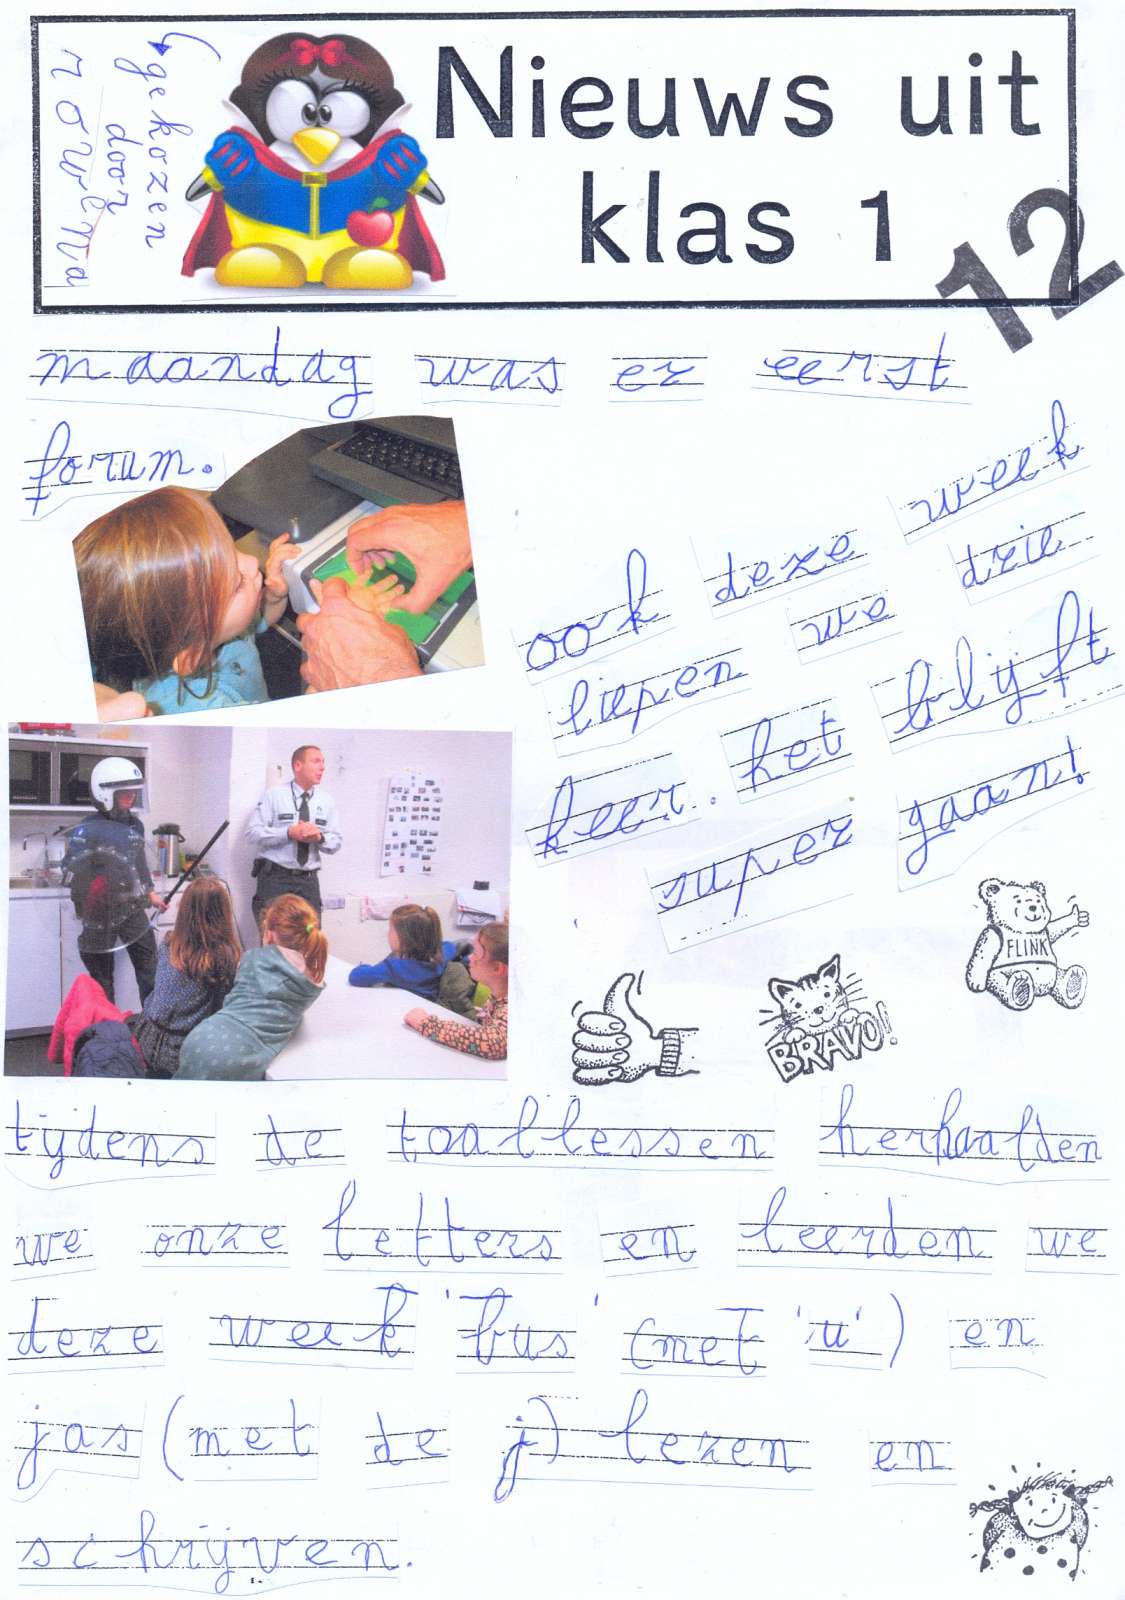 Nieuws uit
klas 1
12
↳ gekozen
door
rowena
maandag was er eerst
forum.
ook deze week
liepen we drie
keer. het blijft
super gaan!
FLINK
BRAVO!!
tijdens de taallessen herhaalden
we onze letters en leerden we
deze week 'bus' (met 'u') en
jas (met de j) lezen en
schrijven.